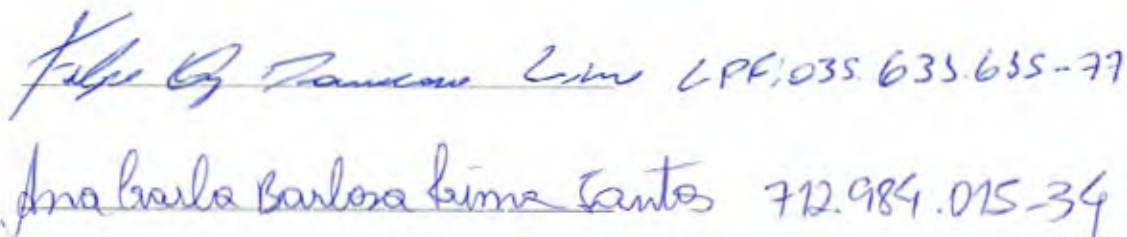 Felipe Lima CPF: 035.635.655-77
Ana Carla Barbosa Lima Santos 712.984.015-34